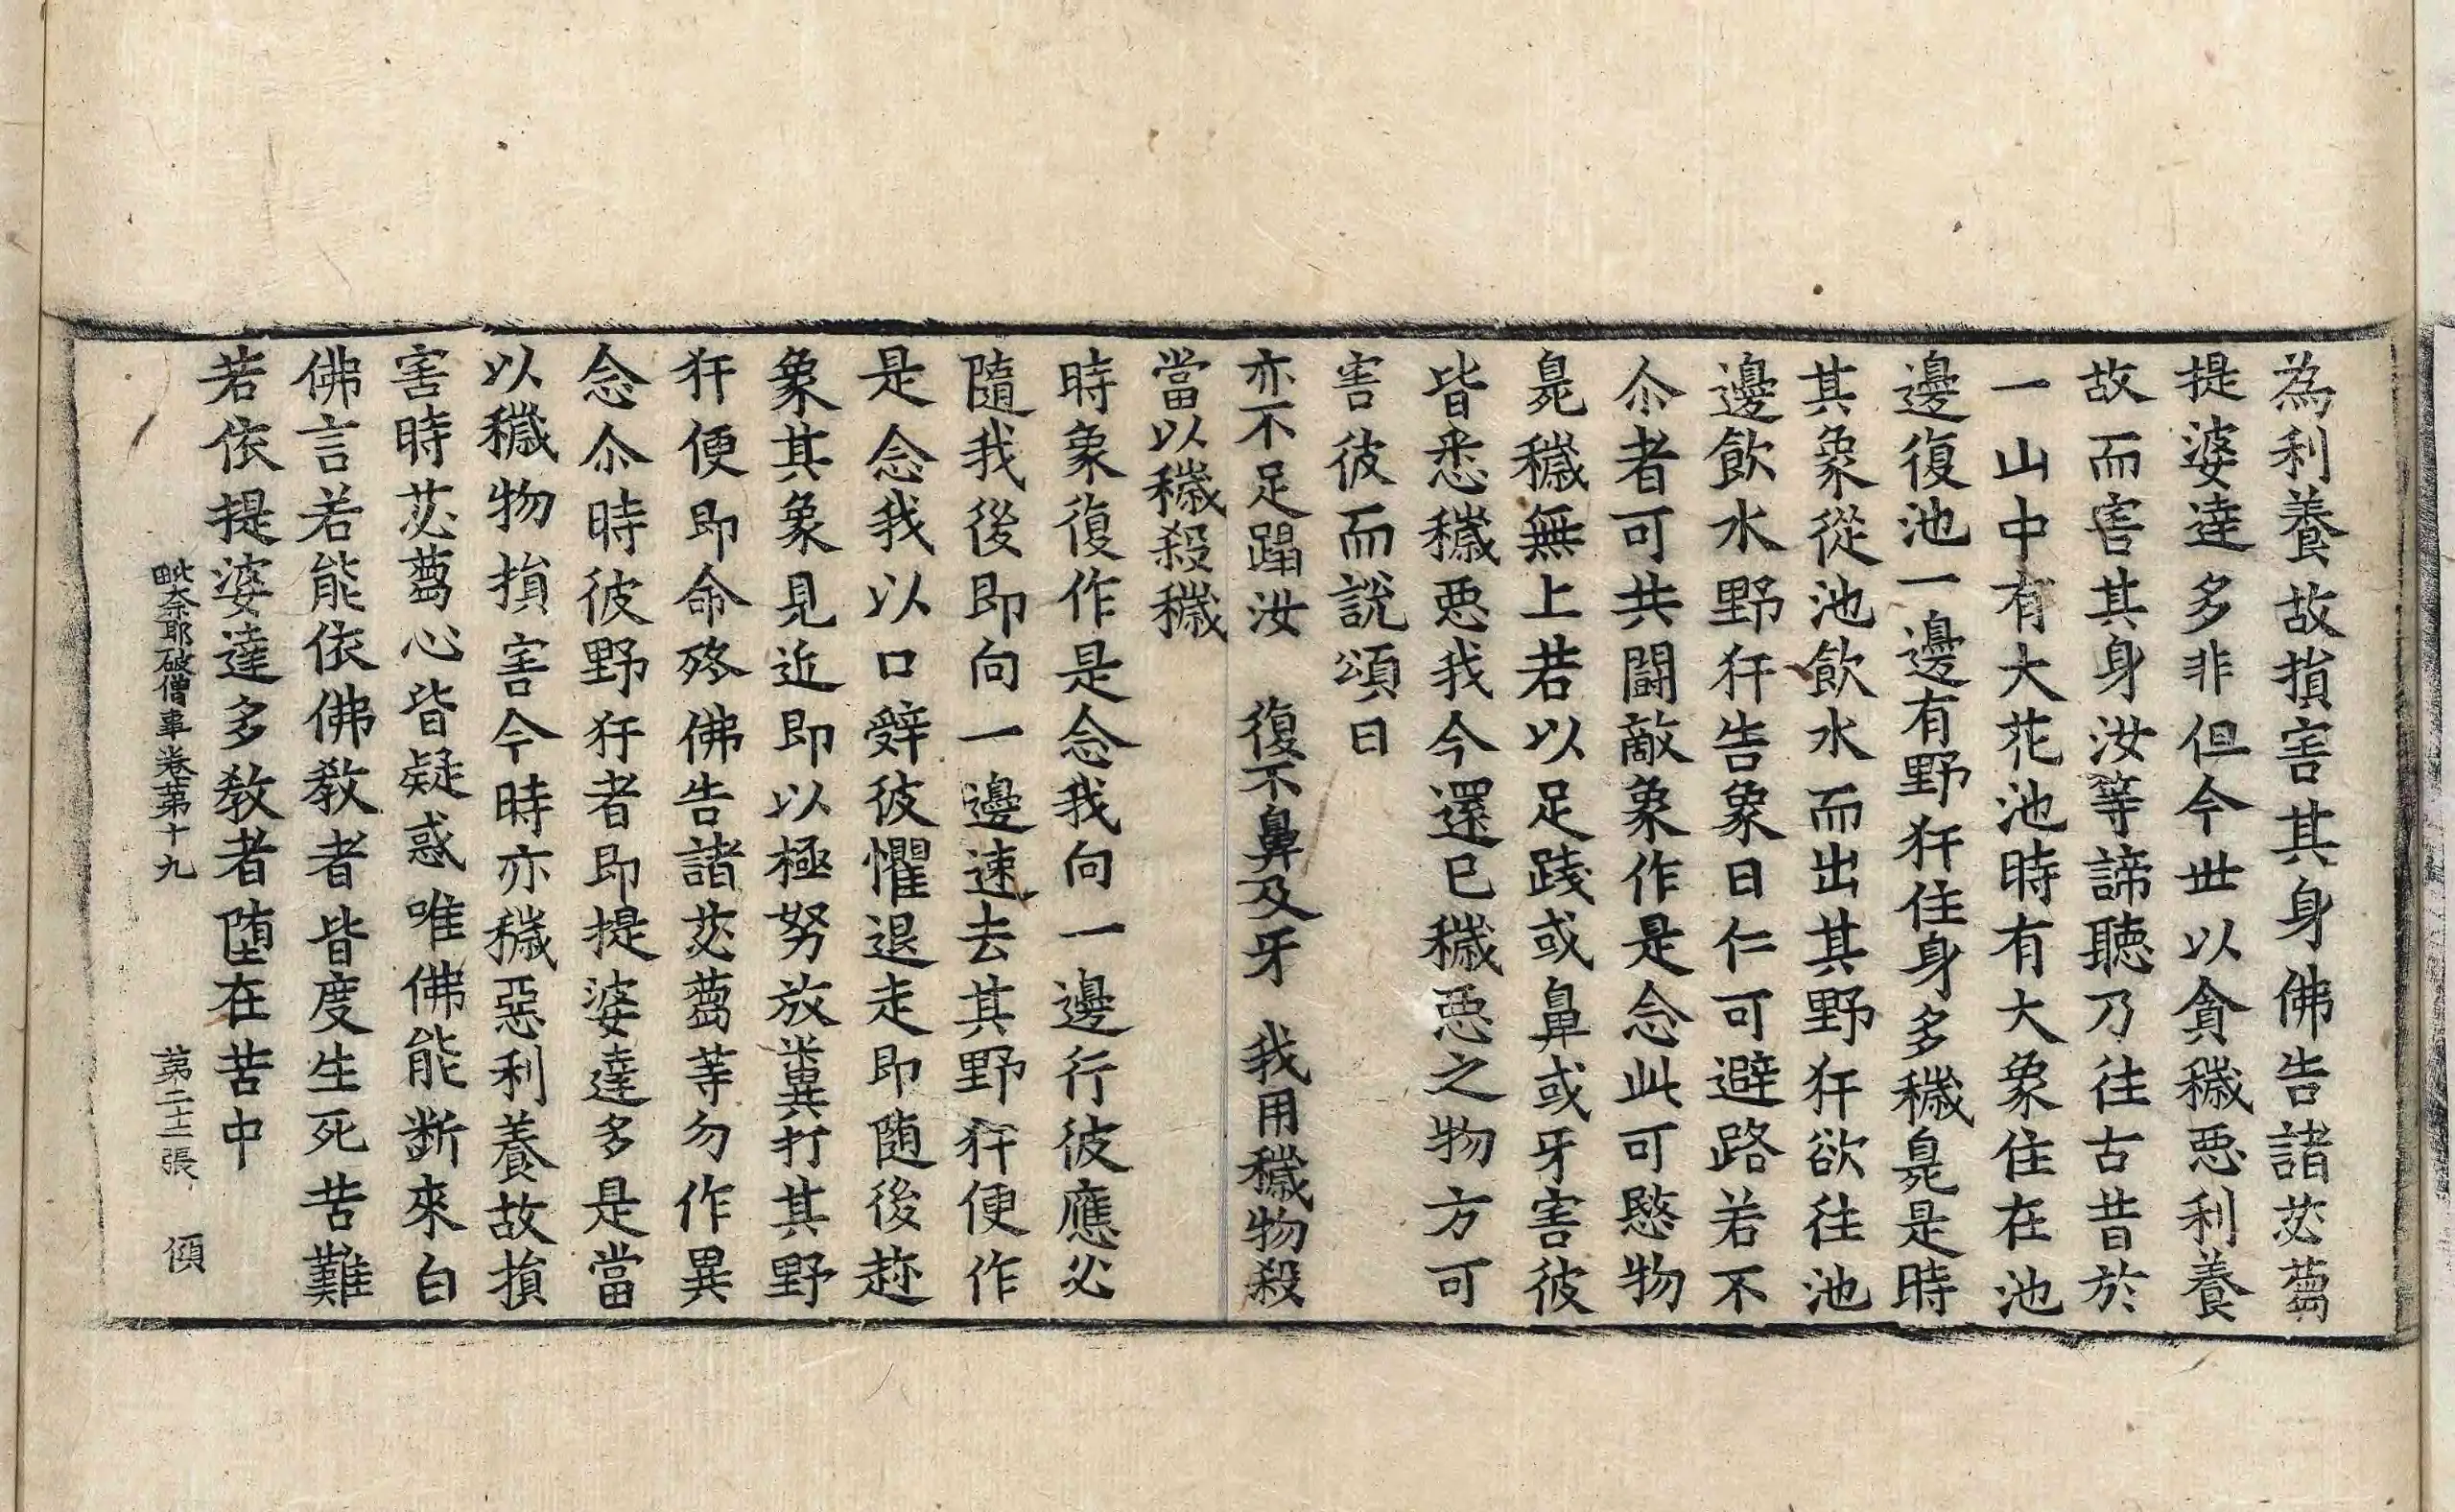 為利養故損害其身佛告諸苾蒭
提婆達多非但今世以貪穢惡利養
故而害其身汝等諦聽乃往古昔於
一山中有大花池時有大象住在池
邊復池一邊有野犴住身多穢臰是時
其象從池飲水而出其野犴欲往池
邊飲水野犴告象曰仁可避路若不
尒者可共鬪敵象作是念此可愍物
臰穢無上若以足踐或鼻或牙害彼
皆悉穢惡我今還已穢惡之物方可
害彼而說頌曰
亦不足蹋汝　復不鼻及牙　我用穢物殺
當以穢殺穢
時象復作是念我向一邊行彼應必
隨我後即向一邊速去其野犴便作
是念我以口辤彼懼退走即随後趂
象其象見近即以極努放糞打其野
犴便即命殁佛告諸苾蒭等勿作異
念尒時彼野犴者即提婆達多是當
以穢物損害今時亦穢惡利養故損
害時苾蒭心皆疑惑唯佛能斷來白
佛言若能依佛教者皆度生死苦難
若依提婆達多教者堕在苦中
毗奈耶破僧事卷第十九　第二十二張　傾